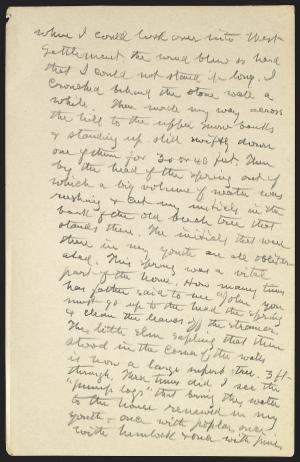 where I could look over into West
Settlement, the wind blew so hard
that I could not stand it long. I
crouched behind the stone wall a
while. Then made my way across
the hill to the upper snow banks
& standing up slid swiftly down
one of them for 30 or 40 feet. Then
by the head of the spring out of
which a big volume of water was
rushing & cut my initials in the
bark of the old beech tree that
stands there. The initials that were
there in my youth are all obliter
ated. This spring was a vital
part of the home. How many times
has father said to me "John you
must go up to the head the spring
& clean the leaves off the strainer"
The little elm sapling that then
stood in the corner of the walls
is now a large superb tree. 3 ft
through. Three times did I see the
"pump logs" that bring the water
to the house renewed in my
youth, once with poplar, once
with hemlock & once with pine,